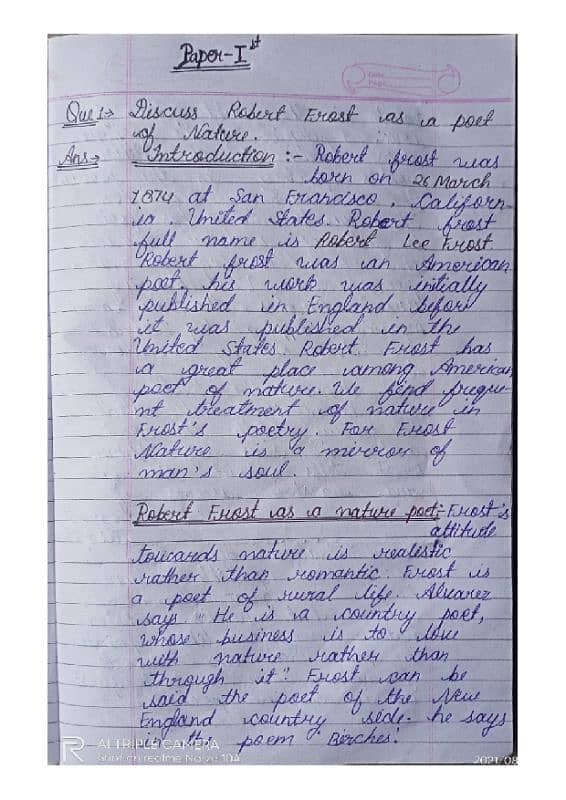 Paper-Ist
Date
Page
Que 1→ Discuss Robert Frost as a poet
of Nature.
Ans→ Introduction :- Robert frost was
born on 26 March
1874 at San Francisco, Californ-
ia, United States. Robert frost
full name is Robert Lee Frost
Robert frost was an American
poet, his work was initially
published in England before
it was published in the
United States. Robert Frost has
a great place among American
poet of nature. We find freque-
nt treatment of nature in
Frost's poetry. For Frost
Nature is a mirror of
man's soul.
Robert Frost as a nature poet:- Frost's
attitude
towards nature is realistic
rather than romantic. Frost is
a poet of rural life. Alvarez
says "He is a country poet,
whose business is to
with nature rather than
through it". Frost can be
said the poet of the New
England country side. he says
in the poem 'Birches'.
R AI TRIPLE CAMERA
Shot on realme Narzo 10A
2021/08